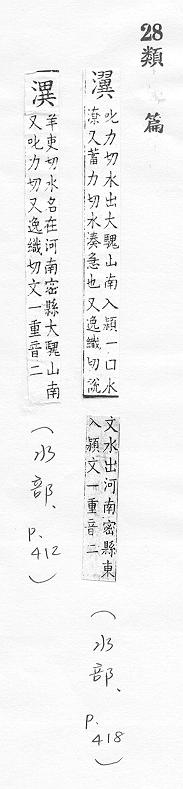 28類篇
瀷
叱力切水出大騩山南入潁一口水
潦又蓄力切水湊急也又逸織切說
文水出河南密縣東
入潁文一重音二
(水部、P.418)
潩
羊吏切水名在河南密縣大騩山南
又叱力切又逸織切文一重音二
(水部、P.412)